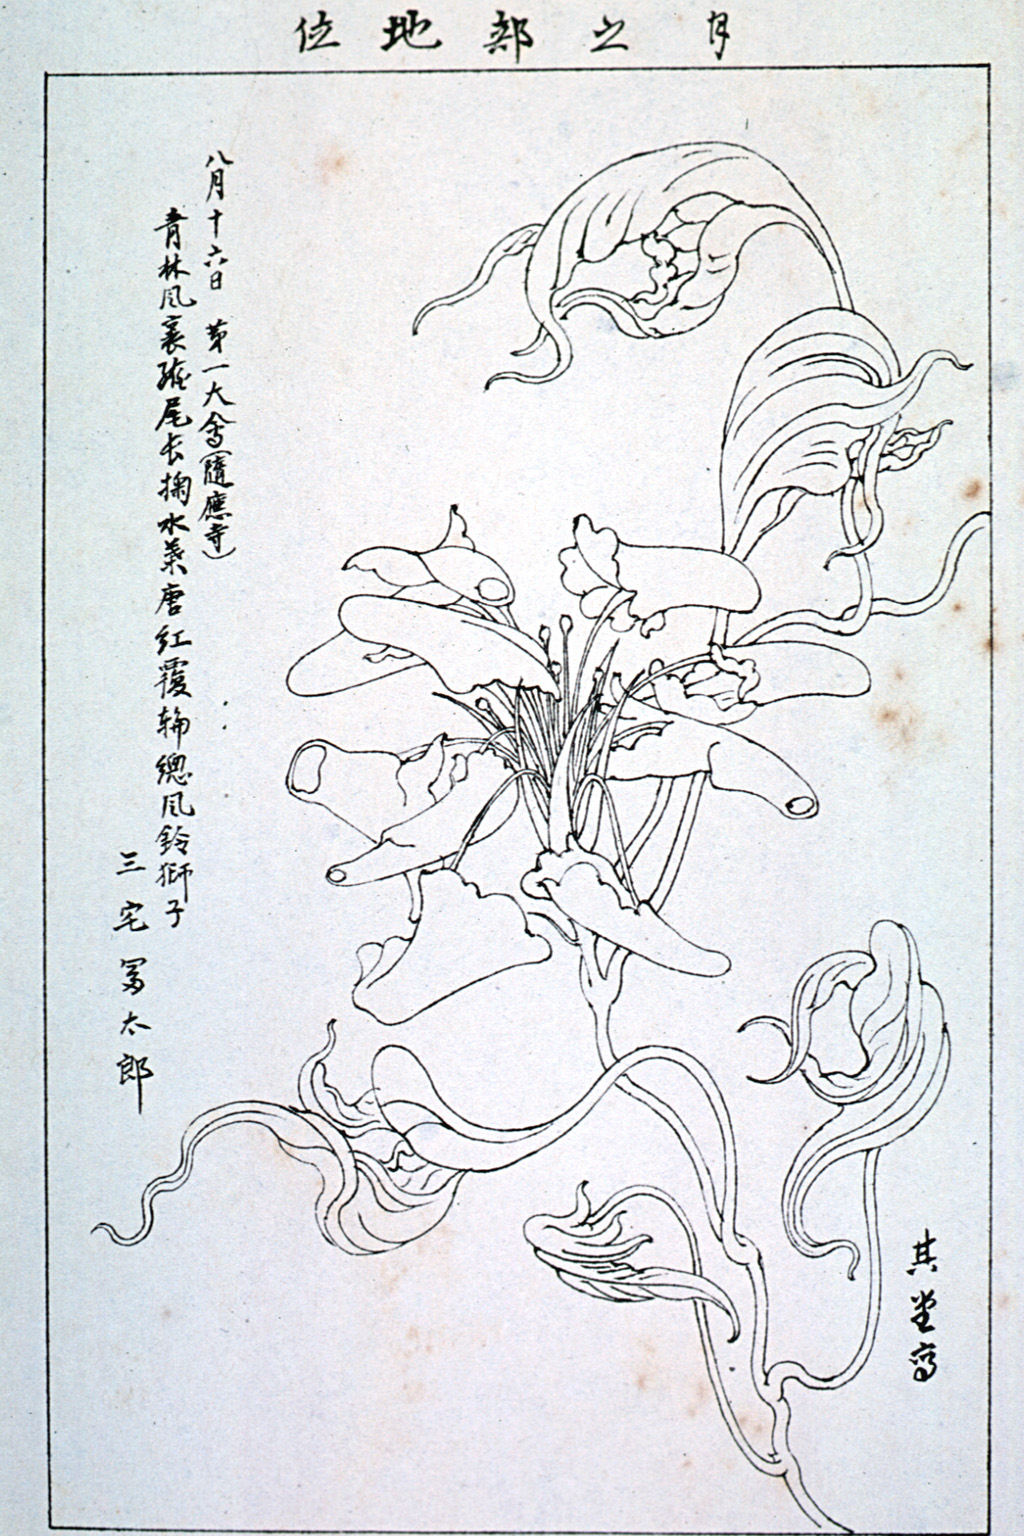 月之部地位
八月十六日 第一大會(隨應寺)
青林風裏尾長掬水葉唐紅覆輪總風鈴獅子
三宅冨太郎
其堂寫